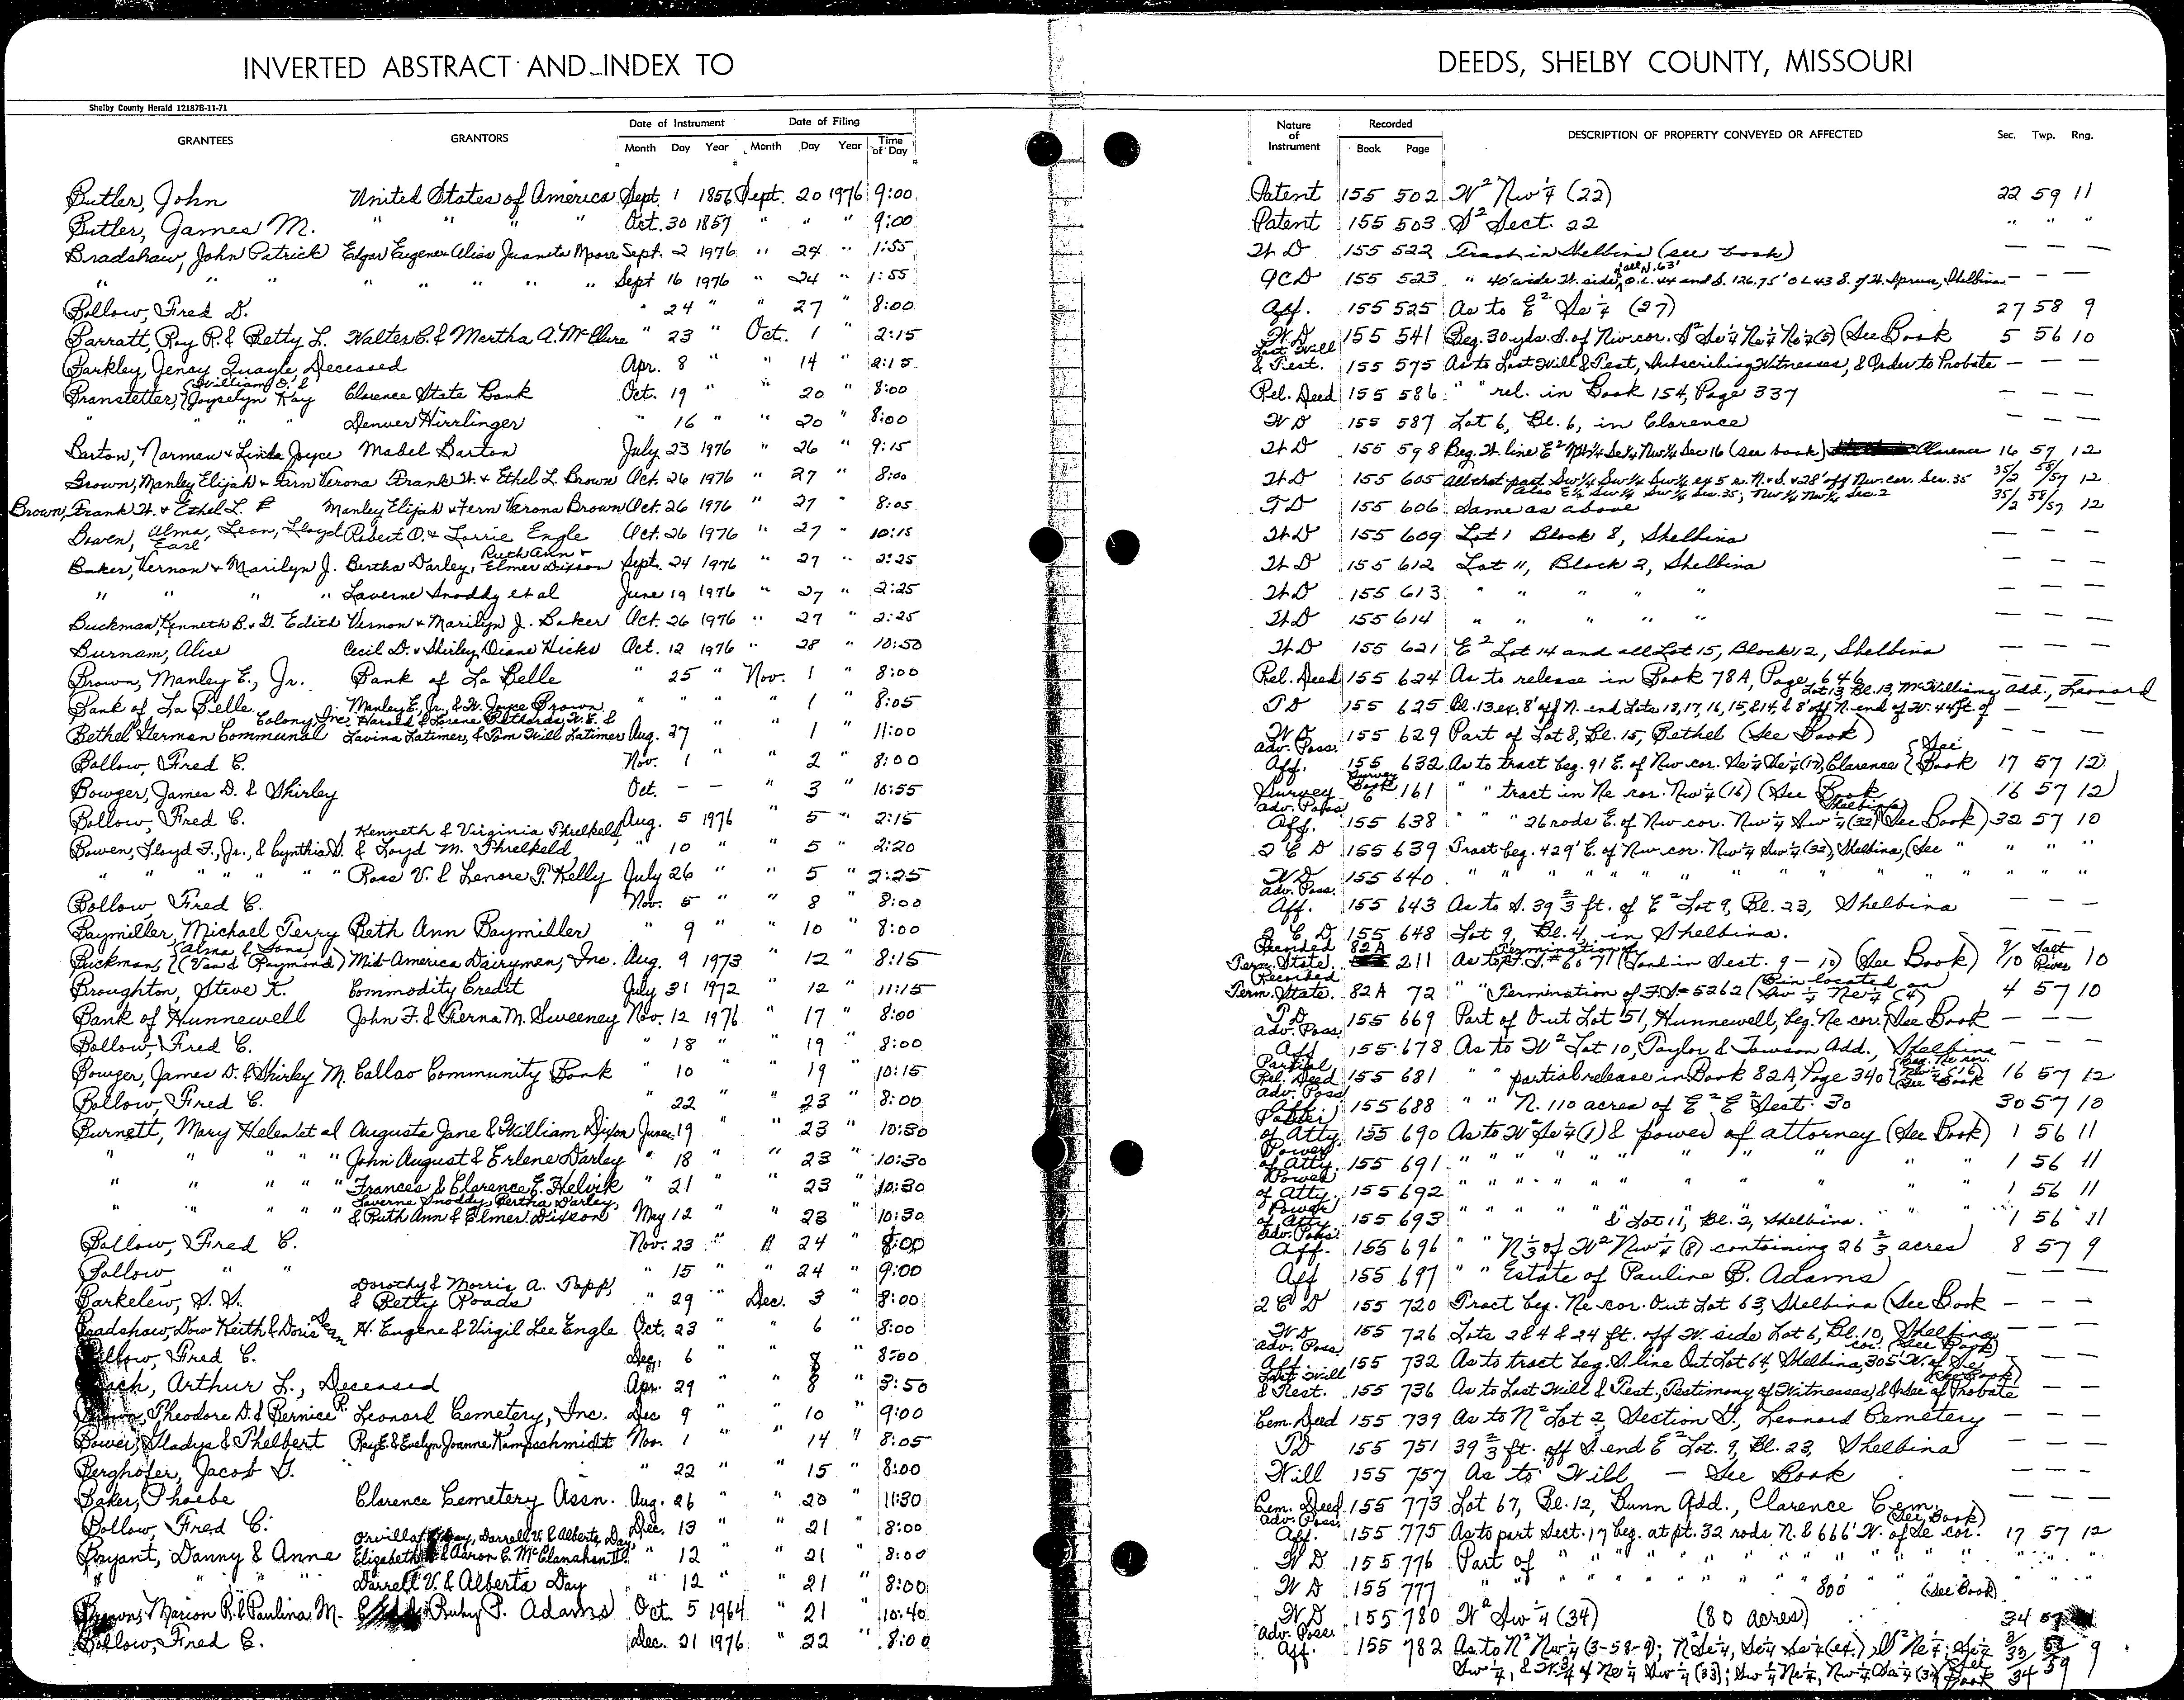 INVERTED ABSTRACT AND INDEX TO
DEEDS, SHELBY COUNTY, MISSOURI
Shelby County Herald 12187B-11-71
GRANTEES GRANTORS Date of Instrument Month Day Year Date of Filing Month Day Year Time of Day Nature of Instrument Recorded Book Page DESCRIPTION OF PROPERTY CONVEYED OR AFFECTED Sec. Twp. Rng.
Butler, John United States of America Sept. 1 1856 Sept. 20 1976 9:00 Patent 155 502 W² Nw¼ (22) 22 59 11
Butler, James M. " " " Oct. 30 1857 " " " 9:00 Patent 155 503 S² Sect. 22 " " "
Bradshaw, John Patrick Edgar Eugene & Alias Juanita Moore Sept. 2 1976 " 24 " 1:55 W D 155 522 Tract in Shelbina (see book) — — —
" " " " " " " Sept 16 1976 " 24 " 1:55 QCD 155 523 " 40' wide W. side, of all N. 63' O.L. 44 and S. 126.75' O L 43 S. of W. Spruce, Shelbina — — —
Bollow, Fred D. " 24 " " 27 " 8:00 Aff. 155 525 As to E² Se¼ (27) 27 58 9
Barratt, Roy R. & Betty L. Walter C. & Martha A. McClure " 23 " Oct. 1 " 2:15 W.D. 155 541 Beg. 30 yds. S. of Nw cor. S² Se¼ Ne¼ Ne¼ (5) (See Book 5 56 10
Barkley, Jency Quayle, Deceased Apr. 8 " " 14 " 2:15 Last Will & Test. 155 575 As to Last Will & Test, Subscribing Witnesses, & Order to Probate — — —
Branstetter, (William O. & Joyselyn Kay Clarence State Bank Oct. 19 " " 20 " 8:00 Rel. Deed 155 586 " " rel. in Book 154, Page 337 — — —
" " " Denver Hirrlinger " 16 " " 20 " 8:00 W D 155 587 Lot 6, Bl. 6, in Clarence — — —
Barton, Norman & Linda Joyce Mabel Barton July 23 1976 " 26 " 9:15 W D 155 598 Beg. W. line E² Nw¼ Se¼ Nw¼ Sec 16 (see book) Clarence 16 57 12
Brown, Manley Elijah & Fern Verona Frank W. & Ethel L. Brown Oct. 26 1976 " 27 " 8:00 W D 155 605 All that part Sw¼ Sw¼ Sw¼ ex 5 a. N. & S. & 28' off Nw. cor. Sec. 35 Also E½ Sw¼ Sw¼ Sec. 35; Nw¼ Nw¼ Sec. 2 35/2 58/57 12
Brown, Frank W. & Ethel L. Manley Elijah & Fern Verona Brown Oct. 26 1976 " 27 " 8:05 T D 155 606 Same as above 35/2 58/57 12
Bowen, Alma, Leon, Lloyd Earl Robert O. & Lorrie Engle Oct. 26 1976 " 27 " 10:15 W D 155 609 Lot 1 Block 8, Shelbina — — —
Baker, Vernon & Marilyn J. Bertha Darley, Ruth Ann & Elmer Dixson Sept. 24 1976 " 27 " 2:25 W D 155 612 Lot 11, Block 2, Shelbina — — —
" " " " Laverne Snoddy et al June 19 1976 " 27 " 2:25 W D 155 613 " " " " — — —
Buckman, Kenneth B. & G. Edith Vernon & Marilyn J. Baker Oct. 26 1976 " 27 " 2:25 W D 155 614 " " " " " — — —
Burnam, Alice Cecil D. & Shirley Diane Hicks Oct. 12 1976 " 28 " 10:50 W D 155 621 E² Lot 14 and all Lot 15, Block 12, Shelbina — — —
Brown, Manley E., Jr. Bank of La Belle " 25 " Nov. 1 " 8:00 Rel. Deed 155 624 As to release in Book 78A, Page 646 — — —
Bank of La Belle Manley E., Jr., & W. Joyce Brown " " " " 1 " 8:05 T D 155 625 Bl. 13 ex. 8' off N. end Lots 18, 17, 16, 15, & 14, & 8' off N. end of W. 44 ft. of Lot 13, Bl. 13, McWilliams Add., Leonard — — —
Bethel German Communal Colony, Inc. Harold & Lorene Pethards, W. E. & Lavina Latimer, & Tom Will Latimer Aug. 27 " 1 " 11:00 W D 155 629 Part of Lot 8, Bl. 15, Bethel (See Book) — — —
Bollow, Fred C. Nov. 1 " " 2 " 8:00 Adv. Poss. Aff. 155 632 As to tract beg. 91 E. of Nw cor. Se¼ Se¼ (17), Clarence (See Book 17 57 12
Bowger, James D. & Shirley Oct. — — " 3 " 10:55 Survey Survey Book 6 161 " " tract in Ne cor. Nw¼ (16) (See Book 16 57 12
Bollow, Fred C. Aug. 5 1976 " 5 " 2:15 Adv. Poss. Aff. 155 638 " " " 26 rods E. of Nw cor. Nw¼ Sw¼ (32) Shelbina (See Book) 32 57 10
Bowen, Lloyd F., Jr., & Cynthia D. Kenneth & Virginia Threlkeld, & Loyd M. Threlkeld " 10 " " 5 " 2:20 Q C D 155 639 Tract beg. 429' E. of Nw cor. Nw¼ Sw¼ (32), Shelbina, (See " " " "
" " " " " " Ross V. & Lenore T. Kelly July 26 " " 5 " 2:25 W D 155 640 " " " " " " " " " "
Bollow, Fred C. Nov. 5 " " 8 " 8:00 Adv. Poss. Aff. 155 643 As to S. 39⅔ ft. of E² Lot 9, Bl. 23, Shelbina — — —
Baymiller, Michael Terry Beth Ann Baymiller " 9 " " 10 " 8:00 Q C D 155 648 Lot 9, Bl. 4, in Shelbina. — — —
Buckman, (Alma & Sons) (Van & Raymond) Mid-America Dairymen, Inc. Aug. 9 1973 " 12 " 8:15 Recorded Term. State. 82A 211 As to Termination of F.S. # 6071 (Land in Sect. 9-10) (See Book) 9/10 Salt River 10
Broughton, Steve K. Commodity Credit July 31 1972 " 12 " 11:15 Recorded Term. State. 82A 72 " " Termination of F.S. # 5262 (Bin located on Sw¼ Ne¼ (4) 4 57 10
Bank of Hunnewell John F. & Ferna M. Sweeney Nov. 12 1976 " 17 " 8:00 T D 155 669 Part of Out Lot 51, Hunnewell, beg. Ne cor. (See Book — — —
Bollow, Fred C. " 18 " " 19 " 8:00 Adv. Poss. Aff 155 678 As to W² Lot 10, Taylor & Towson Add., Shelbina — — —
Bowger, James D. & Shirley M. Callao Community Bank " 10 " " 19 " 10:15 Partial Rel. Deed 155 681 " " partial release in Book 82A, Page 340 (Beg. Ne cor. Nw¼ (16) (See Book 16 57 12
Bollow, Fred C. " 22 " " 23 " 8:00 Adv. Poss Aff. 155 688 " " N. 110 acres of E² E² Sect. 30 30 57 10
Burnett, Mary Helen et al Augusta Jane & William Dixon June 19 " " 23 " 10:30 Power of Atty. 155 690 As to W² Se¼ (1) & power of attorney (See Book) 1 56 11
" " " " John August & Erlene Darley " 18 " " 23 " 10:30 Power of Atty. 155 691 " " " " " " " " " 1 56 11
" " " " Frances & Clarence E. Helvik " 21 " " 23 " 10:30 Power of Atty. 155 692 " " " " " " " " " 1 56 11
" " " " Laverne Snoddy, Bertha Darley, & Ruth Ann & Elmer Dixson May 12 " " 23 " 10:30 Power of Atty. 155 693 " " " " " & Lot 11, Bl. 2, Shelbina. " " 1 56 11
Bollow, Fred C. Nov. 23 " " 24 " 8:00 Adv. Poss. Aff. 155 696 " " N⅓ of W² Nw¼ (8) containing 26⅔ acres) 8 57 9
Bollow " " " 15 " " 24 " 9:00 Aff 155 697 " " Estate of Pauline B. Adams — — —
Barkelew, S. S. Dorothy & Morris A. Topp, & Betty Roads " 29 " Dec. 3 " 8:00 Q C D 155 720 Tract beg. Ne cor. Out Lot 63, Shelbina (See Book — — —
Bradshaw, Dow Keith & Doris Jean H. Eugene & Virgil Lee Engle Oct. 23 " " 6 " 8:00 W D 155 726 Lots 2 & 4 & 24 ft. off W. side Lot 6, Bl. 10, Shelbina — — —
Bollow, Fred C. Dec. 6 " " 8 " 8:00 Adv. Poss. Aff. 155 732 As to tract beg. S. line Out Lot 64, Shelbina, 305' W. of Se cor. (See Book) — — —
Arthur L., Deceased Apr. 29 " " 8 " 3:50 Last Will & Test. 155 736 As to Last Will & Test., Testimony of Witnesses, & Order of Probate (See Book) — — —
Theodore D. & Bernice P. Leonard Cemetery, Inc. Dec 9 " " 10 " 9:00 Cem. Deed 155 739 As to N² Lot 2, Section G, Leonard Cemetery — — —
Bower, Gladys & Thelbert Ray E. & Evelyn Joanne Kampschmidt Nov. 1 " " 14 " 8:05 T D 155 751 39⅔ ft. off S. end E² Lot. 9, Bl. 23, Shelbina — — —
Berghofer, Jacob G. " 22 " " 15 " 8:00 Will 155 757 As to Will — See Book — — —
Baker, Phoebe Clarence Cemetery Assn. Aug. 26 " " 20 " 11:30 Cem. Deed 155 773 Lot 67, Bl. 12, Bunn Add., Clarence Cem. — — —
Bollow, Fred C. Dec. 13 " " 21 " 8:00 Adv. Poss. Aff. 155 775 As to part Sect. 17 beg. at pt. 32 rods N. & 666' W. of Se cor. (See Book) 17 57 12
Bryant, Danny & Anne Orville Day, Darrell V. & Alberta Day, Elizabeth & Aaron C. McClanahan II " 12 " " 21 " 8:00 W D 155 776 Part of " " " " " " " " " "
" " " Darrell V. & Alberta Day " 12 " " 21 " 8:00 W D 155 777 " " " " " " 800' (See Book) " " "
Marion R. & Paulina M. Ruby P. Adams Oct. 5 1964 " 21 " 10:40 W D 155 780 W² Sw¼ (34) (80 acres) 34 57
Bollow, Fred C. Dec. 21 1976 " 22 " 8:00 Adv. Poss. Aff. 155 782 As to N² Nw¼ (3-58-9); N² Se¼, Se¼ Se¼ (ex.), S² Ne¼; Se¼
Sw¼, & W.¾ of Ne¼ Sw¼ (33); Sw¼ Ne¼, Nw¼ Se¼ (34) (See Book 3/33/34 58/59 9